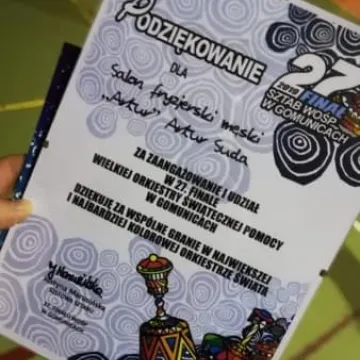 PODZIĘKOWANIE
DLA
Salon fryzjerski męski
"Artur" Artur Suda
27
FINAŁ
SZTAB WOŚP
W GOMUNICACH
ZA ZAANGAŻOWANIE I UDZIAŁ
W 27. FINALE
WIELKIEJ ORKIESTRY ŚWIĄTECZNEJ POMOCY
W GOMUNICACH
DZIĘKUJĘ ZA WSPÓLNE GRANIE W NAJWIĘKSZEJ
I NAJBARDZIEJ KOLOROWEJ ORKIESTRZE ŚWIATA